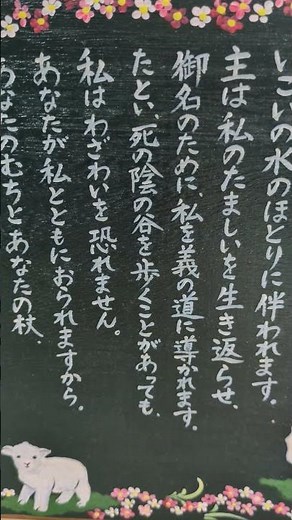 いこいの水のほとりに伴われます。
主は私のたましいを生き返らせ、
御名のために、私を義の道に導かれます。
たとい、死の陰の谷を歩くことがあっても、
私はわざわいを恐れません。
あなたが私とともにおられますから。
あなたのむちとあなたの杖、